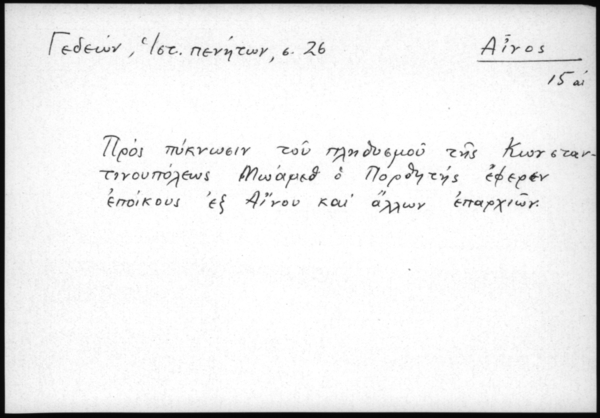 Γεδεών, Ἱστ. πενήτων, σ. 26
Αἶνος
15 αἰ
Πρὸς πύκνωσιν τοῦ πληθυσμοῦ τῆς Κωνσταν-
τινουπόλεως Μωάμεθ ὁ Πορθητής ἔφερεν
ἐποίκους ἐξ Αἴνου καὶ ἄλλων ἐπαρχιῶν.